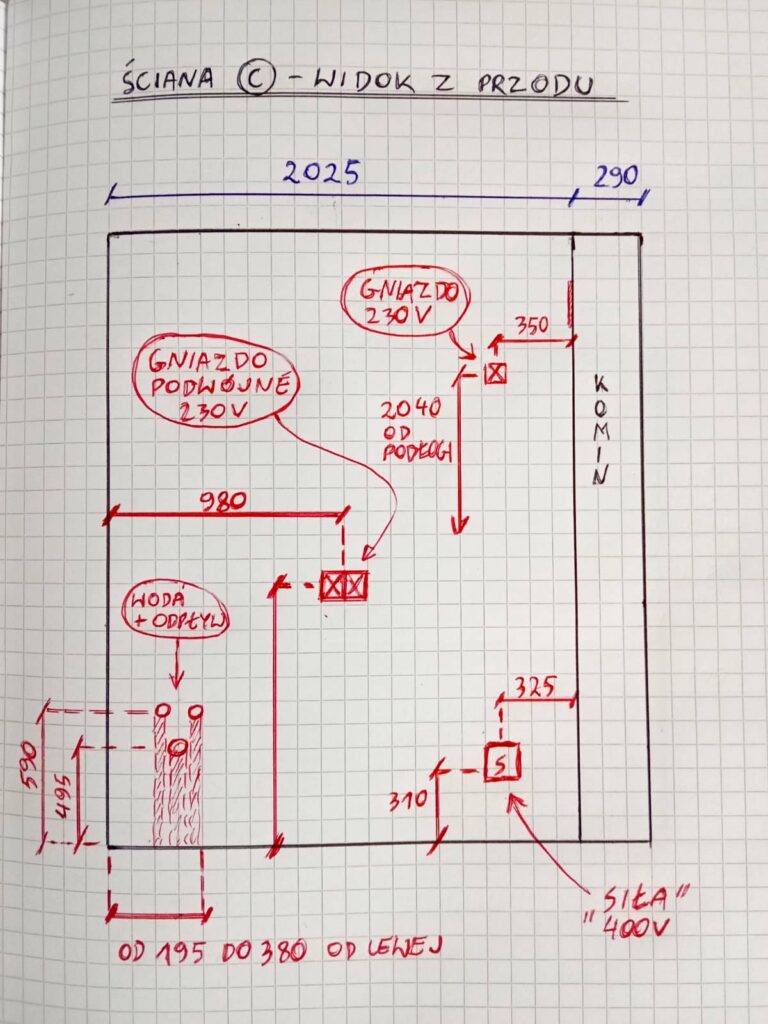 ŚCIANA C - WIDOK Z PRZODU
2025
290
GNIAZDO
230V
350
GNIAZDO
PODWÓJNE
230V
2040
OD
PODŁOGI
KOMIN
980
WODA
+ ODPŁYW
325
590
495
S
310
"SIŁA"
400V
OD 195 DO 380 OD LEWEJ